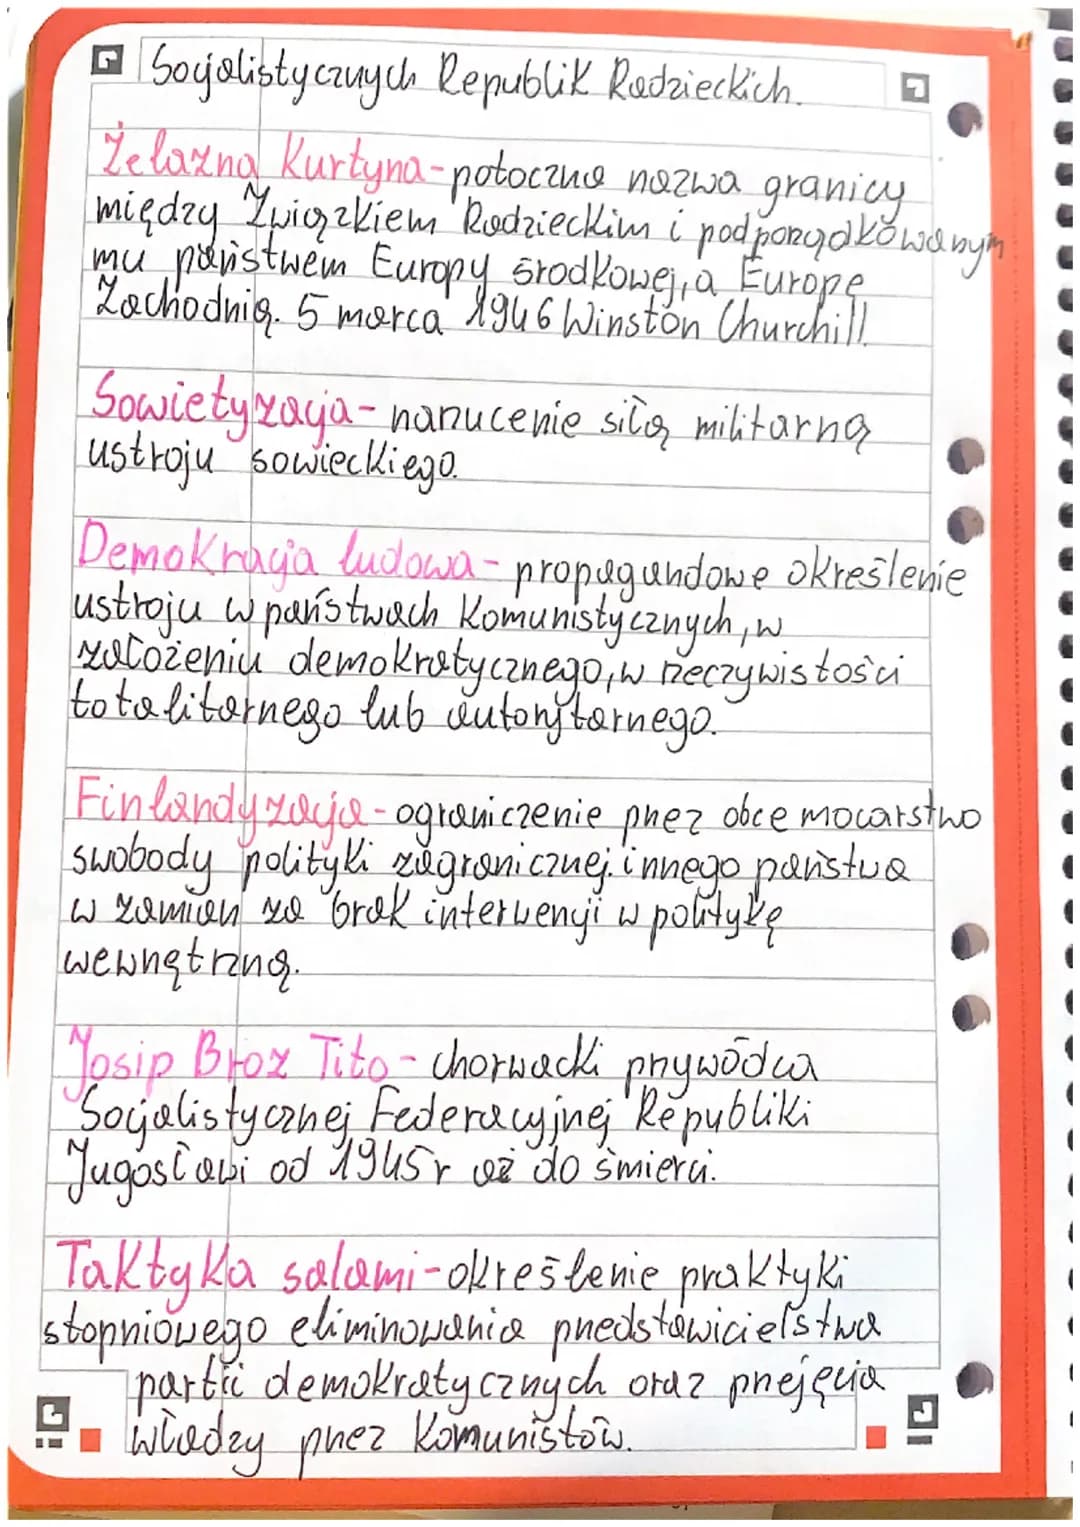 Socjalistycznych Republik Radzieckich.
Żelazna Kurtyna - potoczna nazwa granicy
między Związkiem Radzieckim i podporządkowanym
mu państwem Europy środkowej, a Europę
Zachodnią. 5 marca 1946 Winston Churchill
Sowietyzacja - narzucenie siłą militarną
ustroju sowieckiego.
Demokracja ludowa - propagandowe określenie
ustroju w państwach komunistycznych, w
założeniu demokratycznego, w rzeczywistości
totalitarnego lub autorytarnego.
Finlandyzacja - ograniczenie przez obce mocarstwo
swobody polityki zagranicznej innego państwa
w zamian za brak interwencji w politykę
wewnętrzną.
Josip Broz Tito - chorwacki przywódca
Socjalistycznej Federacyjnej Republiki
Jugosławi od 1945r aż do śmierci.
Taktyka salami - określenie praktyki
stopniowego eliminowania przedstawicielstwa
partii demokratycznych oraz przejęcia
władzy przez Komunistów.